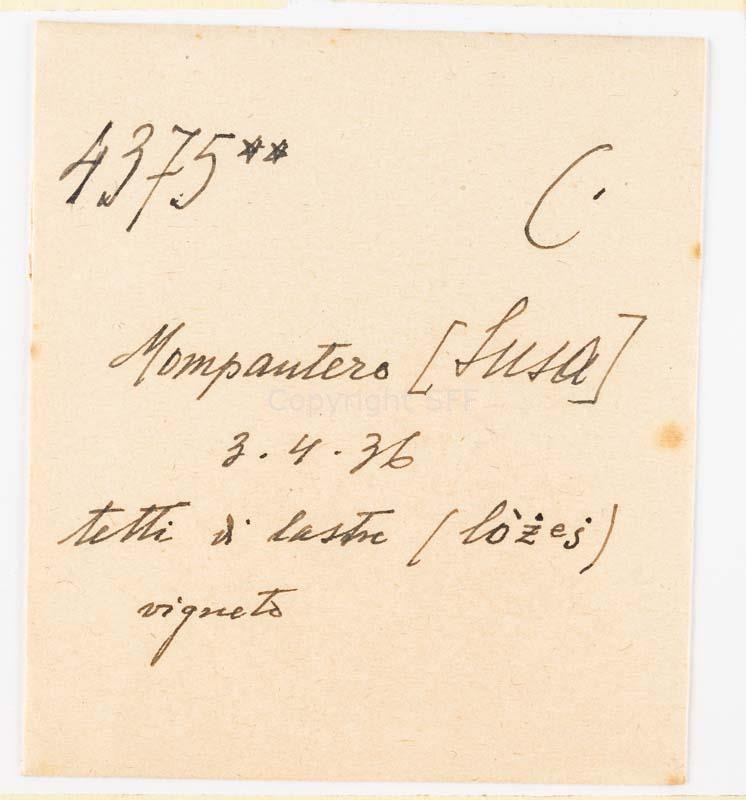 4375** C.
Mompantero [Susa]
Copyright SFF
3.4.36
tetti di lastre (lòżeṡ)
vigneto